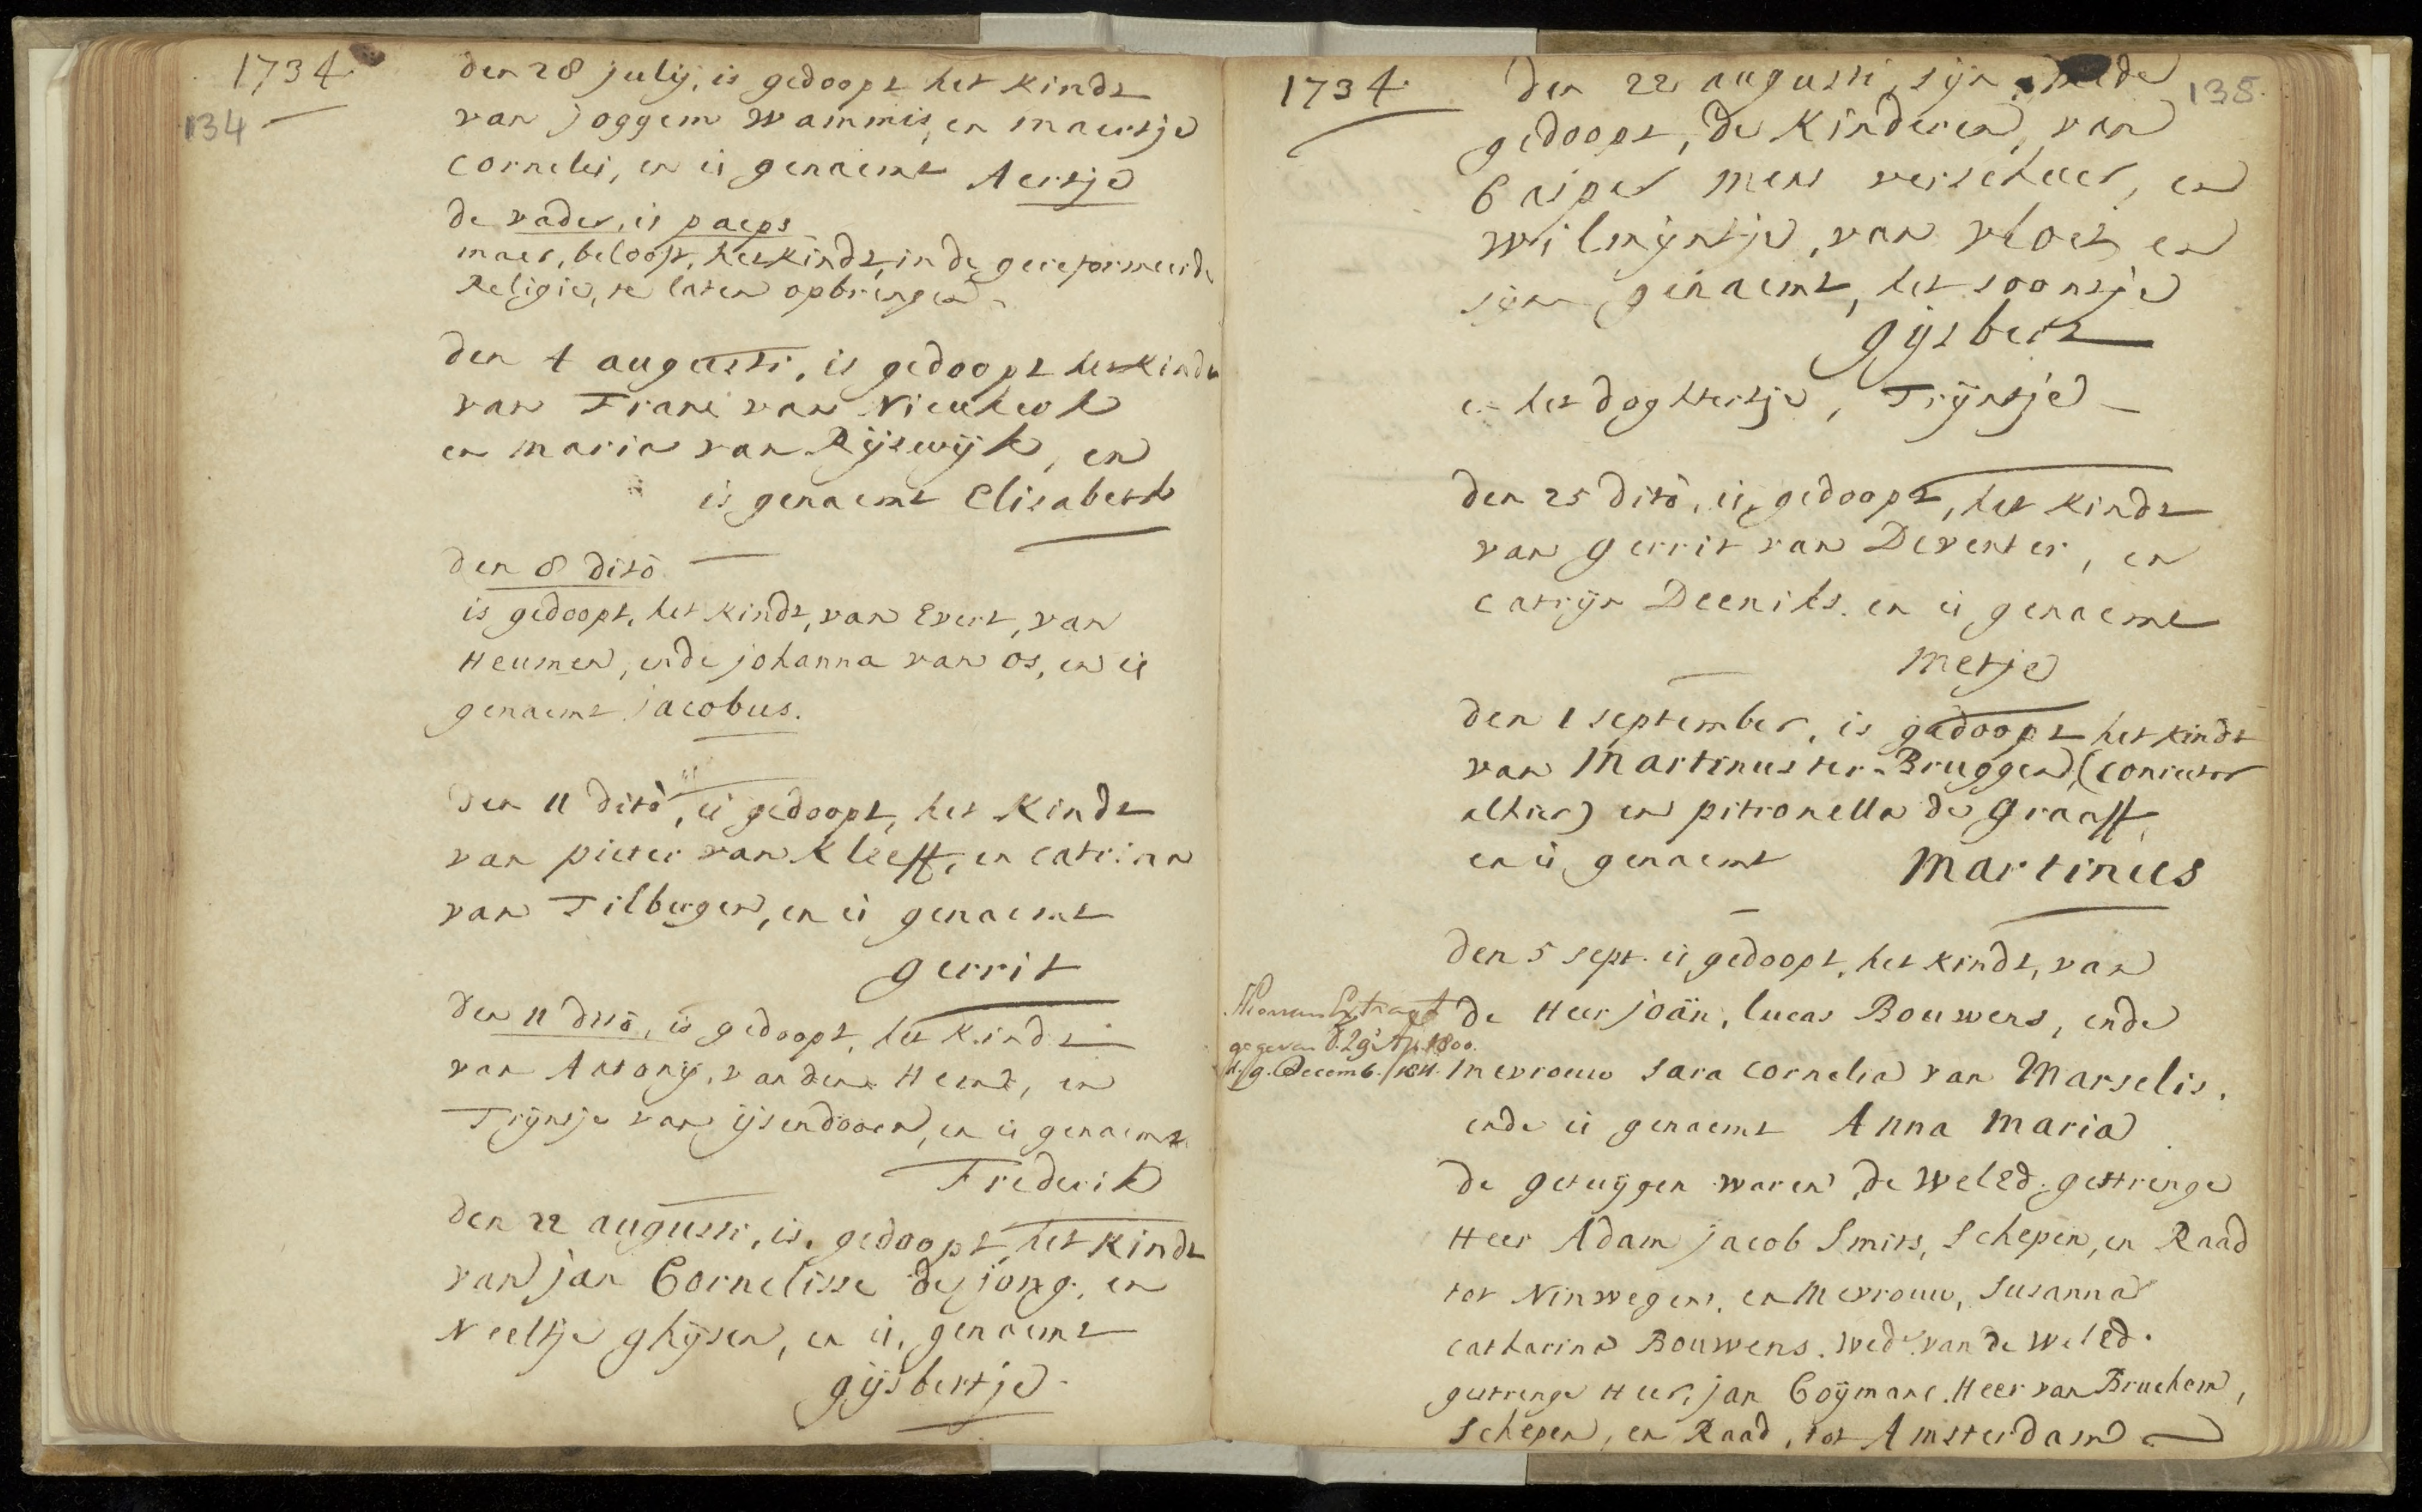 1734
134
den 28 julij, is gedoopt het kindt
van joggem Wammis, en maertje
Cornelis, en is genaemt Aertje
de vader, is paeps
maer, beloopt, het kindt, in de gereformeerde
Religie, te laten opbrengen
den 4 augusti, is gedoopt het kindt
van Frans van Nieukerk
en maria van Rijswijk, en
is genaemt Elisabeth
den 8 dito
is gedoopt, het kindt, van Evert, van
Heumen, ende johanna van Os, en is
genaemt jacobus.
den 11 dito, is gedoopt, het Kindt
van pieter van Kleeff, en catrina
van Tilburgen, en is genaemt
gerrit
den 11 dito, is gedoopt, het Kindt
van Antonij, van den Heind, en
Trijntje van ijsendooren, en is genaemt
Frederik
den 22 augusti, is gedoopt, het Kindt
van jan Cornelisse de jong, en
Neeltje ghijsen, en is, genaemt
gijsbertje
1734
135
den 22 augusti, sijn mede
gedoopt, de Kinderen, van
Casper mens verscheer, en
Wilmijntje, van vloet, en
sijn genaemt, het soontje
gijsbert
en het doghtertje, Trijntje
den 25 dito, is, gedoopt, het kindt
van gerrit van Deventer, en
catrijn Deeniks. en is genaemt
Metje
den 1 september, is gedoopt het kindt
van Martinus ter-Bruggen, (conrector
alhier) en pitronella de Graaff,
en is genaemt Martinus
den 5 sept. is gedoopt, het kindt, van
de Heer joän, lucas Bouwens, ende
Hiervan Extract
gegeven d. 29 Ap. 1800.
d. 9. Decemb. 1811.
mevrouw sara cornelia van Marselis.
ende is genaemt Anna Maria
de getuijgen waren, de WelEd. gestrenge
Heer Adam jacob Smits, Schepen, en Raad
tot Nimwegen, en Mevrouw, Susanna
catharina Bouwens. Wede. van de WelEd.
gestrenge Heer, jan Coijmans. Heer van Bruchem,
Schepen, en Raad, tot Amsterdam